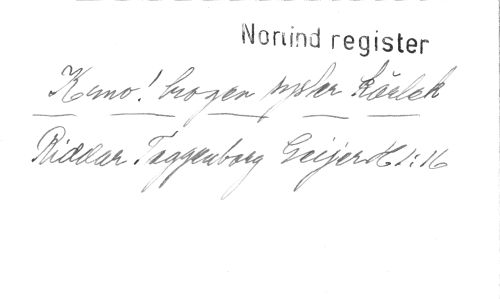 Nortind register
Kmo! trogen syster kärlek
Riddar Toggenborg Geijer H 1:16